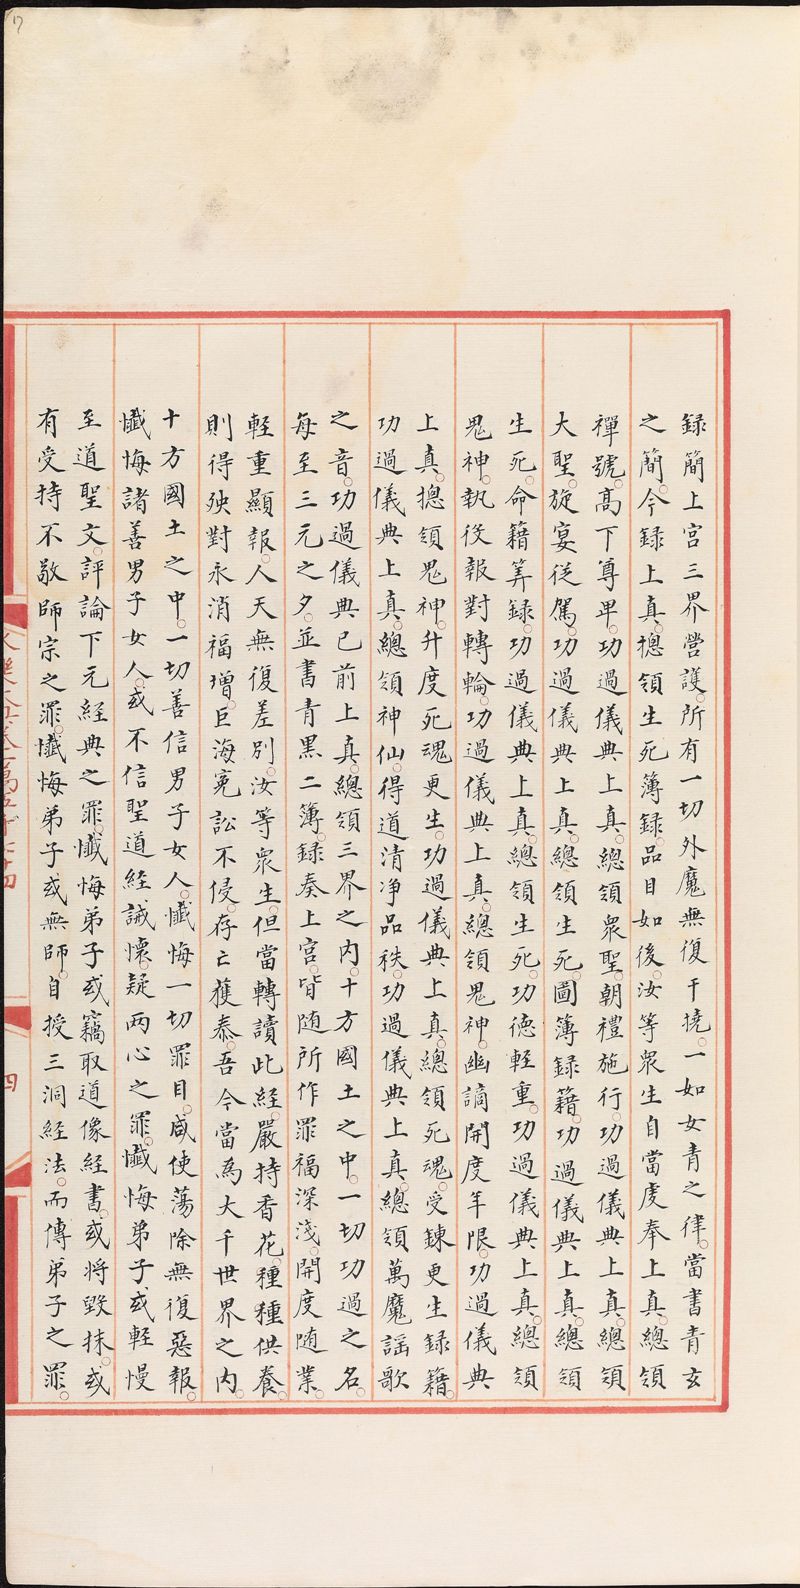 録簡上宫三界營護。所有一切外魔無復干撓。一如女青之律。當書青玄
之簡。今録上真。摠領生死簿録。品目如後。汝等衆生自當虔奉上真。總領
禪號。高下尊卑。功過儀典上真。總領衆聖。朝禮施行。功過儀典上真。總領
大聖。旋宴從駕。功過儀典上真。總領生死。圖簿録籍。功過儀典上真。總領
生死。命籍筭録。功過儀典上真。總領生死。功德輕重。功過儀典上真。總領
鬼神。執役報對轉輪。功過儀典上真。總領鬼神。幽謫開度年限。功過儀典
上真。摠領鬼神。升度死魂更生。功過儀典上真。總領死魂。受鍊更生録籍。
功過儀典上真。總領神仙。得道清净品秩。功過儀典上真。總領萬魔謡歌
之音。功過儀典已前上真。總領三界之内。十方國土之中。一切功過之名。
每至三元之夕。並書青黑二簿。録奏上宫。皆随所作罪福深淺。開度随業。
輕重顯報。人天無復差别。汝等衆生。但當轉讀此經。嚴持香花。種種供養。
則得殃對永消福增。巨海寃訟不侵。存亡獲泰。吾今當為大千世界之内。
十方國土之中。一切善信男子女人。懺悔一切罪目。咸使蕩除無復惡報。
懺悔諸善男子女人。或不信聖道經誡。懷疑两心之罪。懺悔弟子或輕慢
至道聖文。評論下元經典之罪。懺悔弟子或竊取道像經書。或將毁抹。或
有受持不敬師宗之罪。懺悔弟子或無師。自授三洞經法。而傳弟子之罪。
四